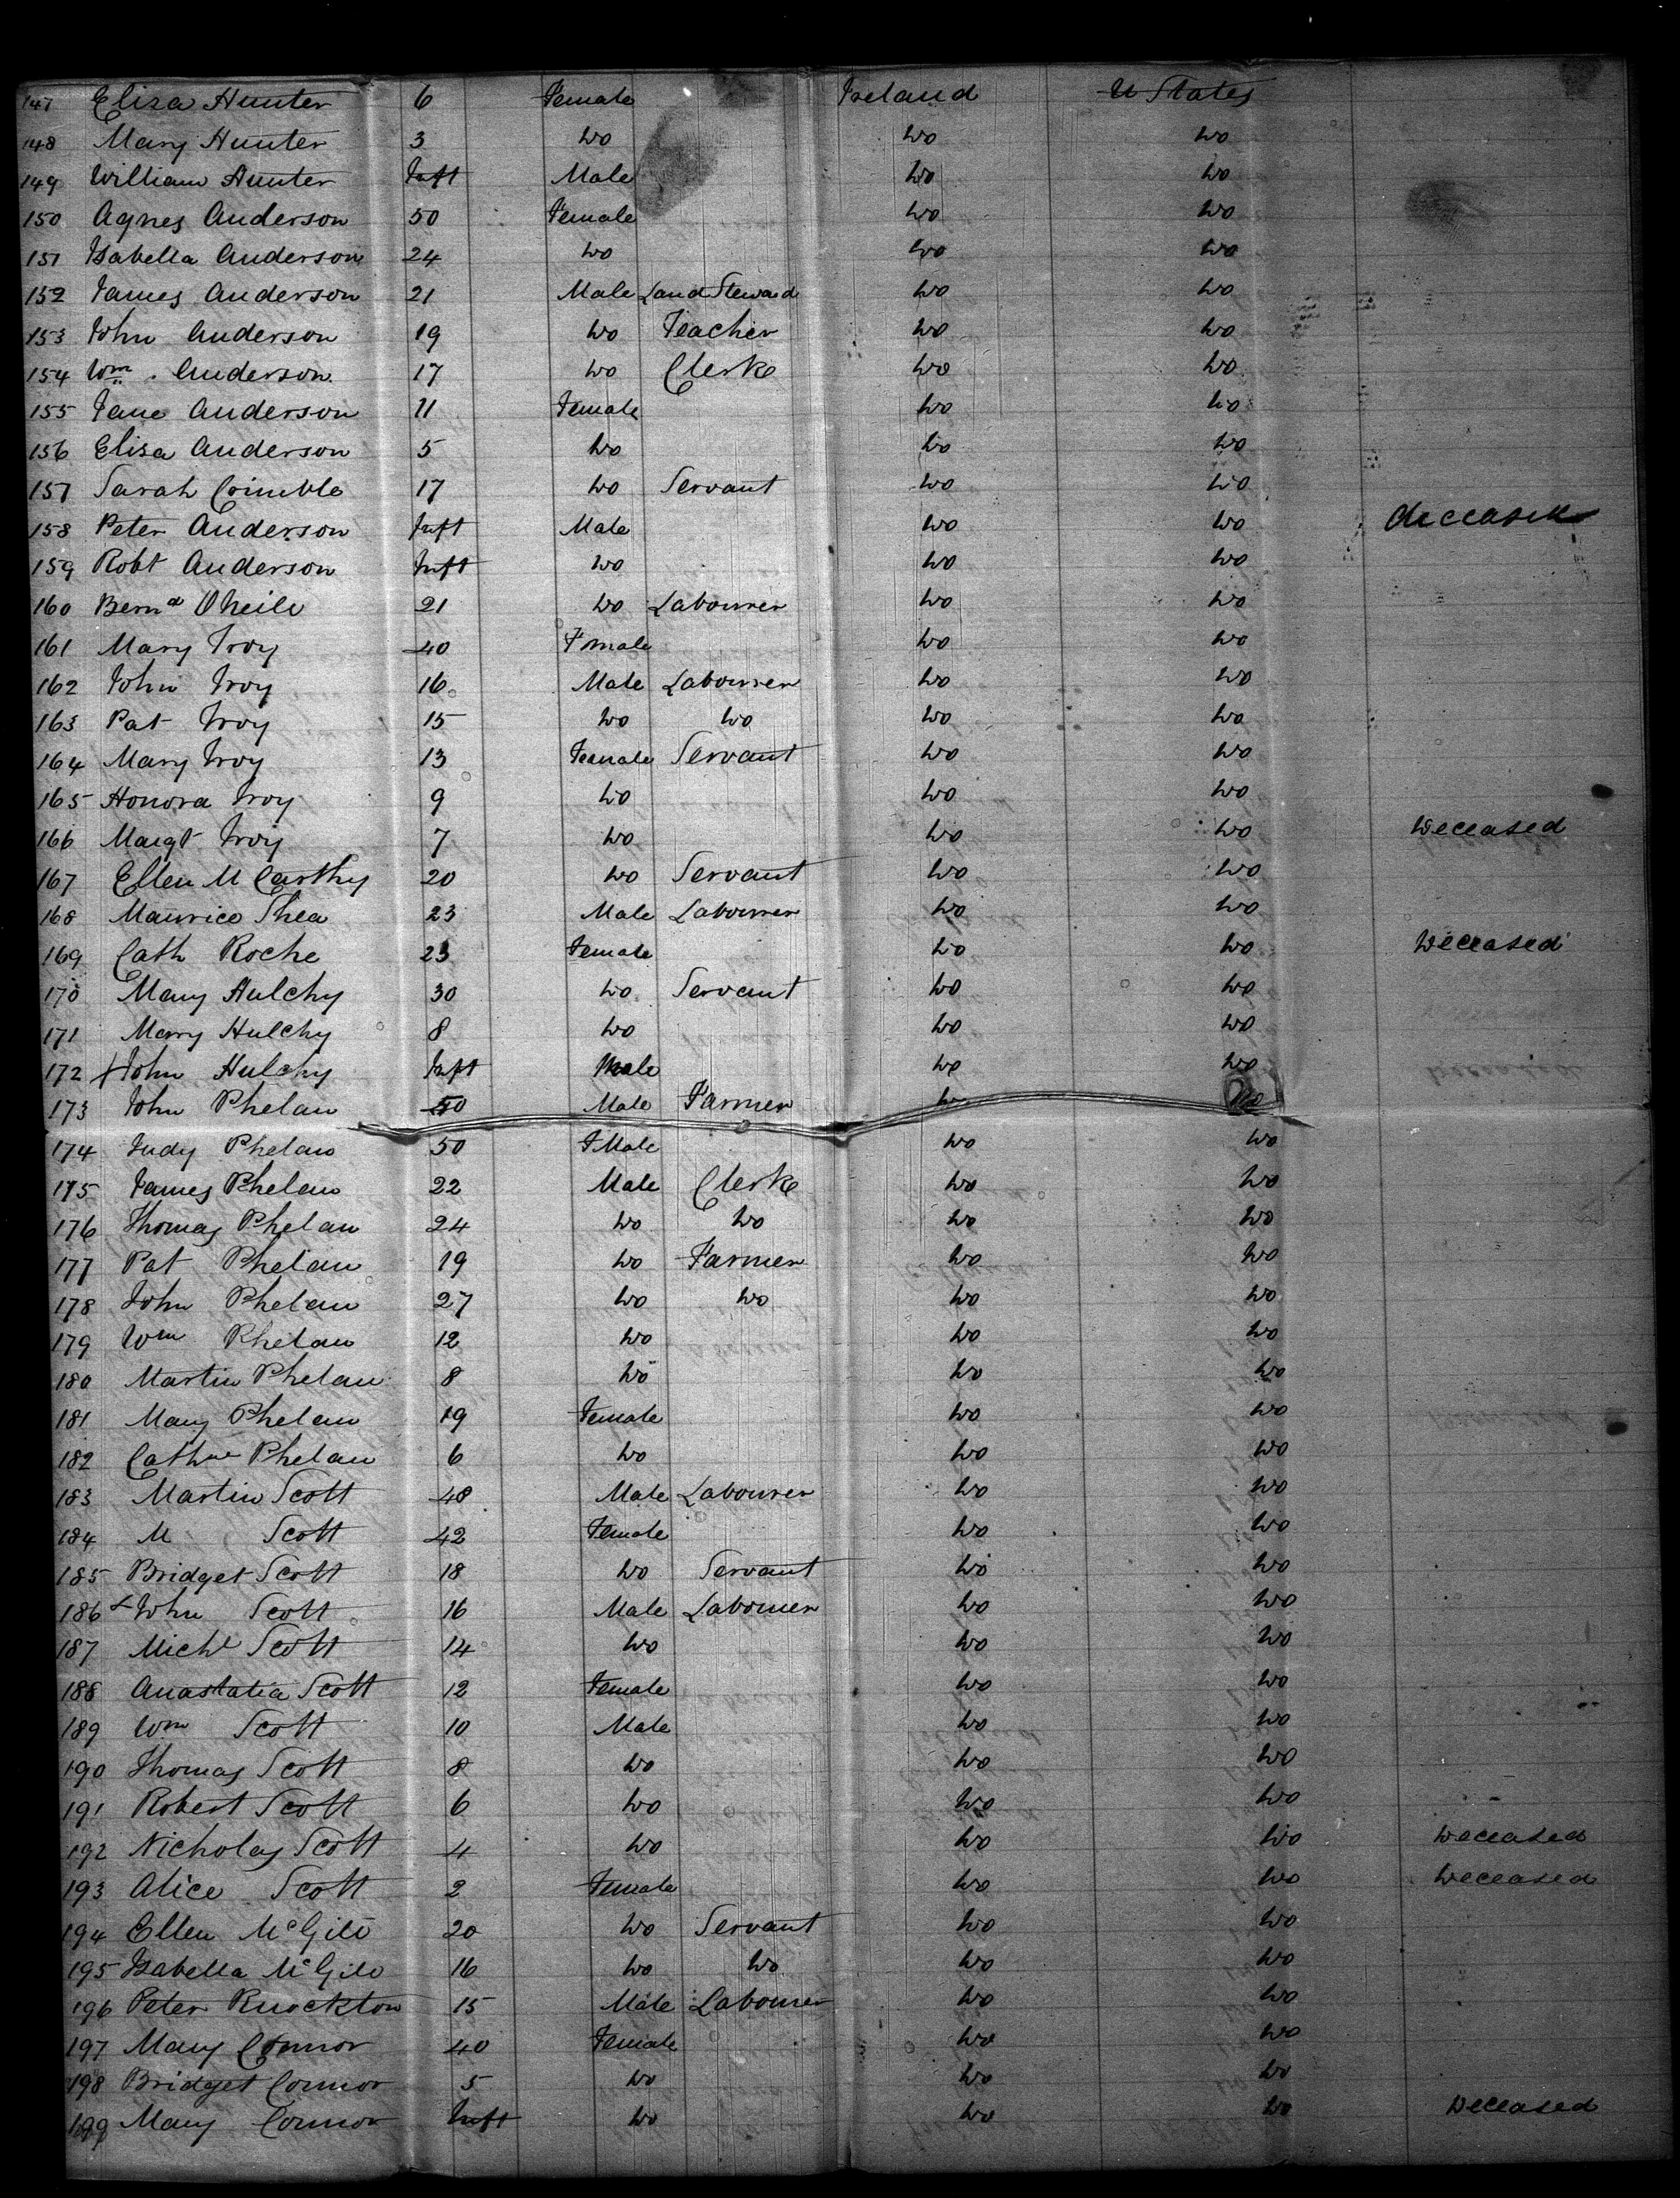 147 Eliza Hunter 6 Female Ireland U States
148 Mary Hunter 3 Do Do Do
149 William Hunter Inft Male Do Do
150 Agnes Anderson 50 Female Do Do
151 Isabella Anderson 24 Do Do Do
152 James Anderson 21 Male Land Steward Do Do
153 John Anderson 19 Do Teacher Do Do
154 Wm. Anderson 17 Do Clerk Do Do
155 Jane Anderson 11 Female Do Do
156 Eliza Anderson 5 Do Do Do
157 Sarah Crimble 17 Do Servant Do Do
158 Peter Anderson Inft Male Do Do deceased
159 Robt Anderson Inft Do Do Do
160 Bernd ONeile 21 Do Labourer Do Do
161 Mary Troy 40 Fmale Do Do
162 John Troy 16 Male Labourer Do Do
163 Pat Troy 15 Do Do Do Do
164 Mary Troy 13 Female Servant Do Do
165 Honora Troy 9 Do Do Do
166 Margt Troy 7 Do Do Do Deceased
167 Ellen McCarthy 20 Do Servant Do Do
168 Maurice Shea 23 Male Labourer Do Do
169 Cath Roche 23 Female Do Do Deceased
170 Mary Hulchy 30 Do Servant Do Do
171 Mary Hulchy 8 Do Do Do
172 John Hulchy Inft Male Do Do
173 John Phelan 50 Male Farmer Do Do
174 Judy Phelan 50 FMale Do Do
175 James Phelan 22 Male Clerk Do Do
176 Thomas Phelan 24 Do Do Do Do
177 Pat Phelan 19 Do Farmer Do Do
178 John Phelan 27 Do Do Do Do
179 Wm Phelan 12 Do Do Do
180 Martin Phelan 8 Do Do Do
181 Mary Phelan 19 Female Do Do
182 Cathne Phelan 6 Do Do Do
183 Martin Scott 48 Male Labourer Do Do
184 M Scott 42 Female Do Do
185 Bridget Scott 18 Do Servant Do Do
186 John Scott 16 Male Labourer Do Do
187 Michl Scott 14 Do Do Do
188 Anastatia Scott 12 Female Do Do
189 Wm Scott 10 Male Do Do
190 Thomas Scott 8 Do Do Do
191 Robert Scott 6 Do Do Do
192 Nicholas Scott 4 Do Do Do Deceased
193 Alice Scott 2 Female Do Do Deceased
194 Ellen McGill 20 Do Servant Do Do
195 Isabella McGill 16 Do Do Do Do
196 Peter Knockton 15 Male Labourer Do Do
197 Mary Connor 40 Female Do Do
198 Bridget Connor 5 Do Do Do
199 Mary Connor Inft Do Do Do Deceased